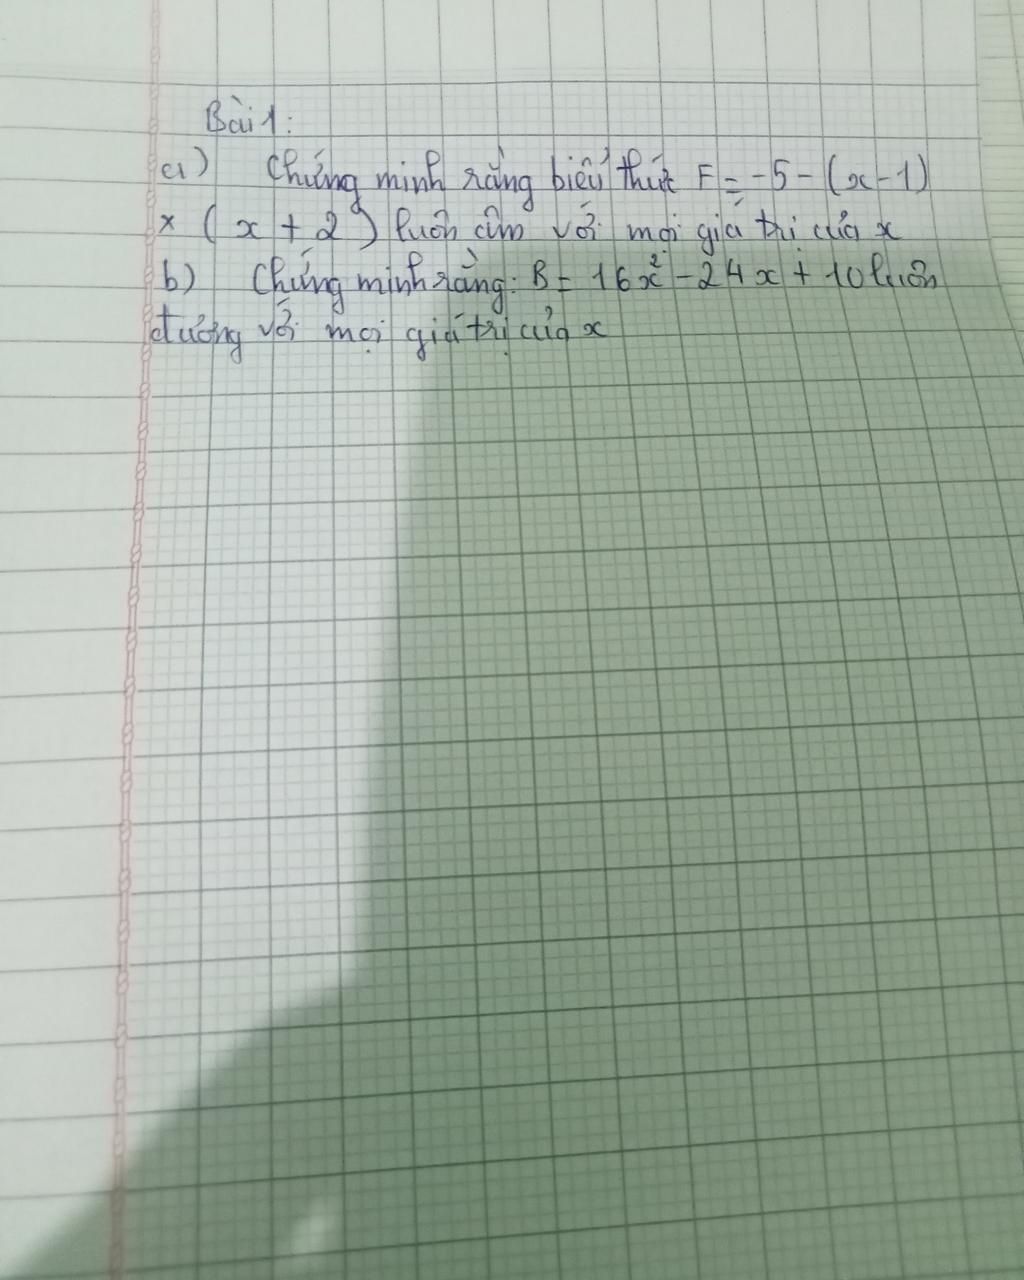 Bài 1:
a) Chứng minh rằng biểu thức F = -5 - (x - 1)
× (x + 2) luôn âm với mọi giá trị của x
b) Chứng minh rằng: B = 16x² - 24x + 10 luôn
dương với mọi giá trị của x